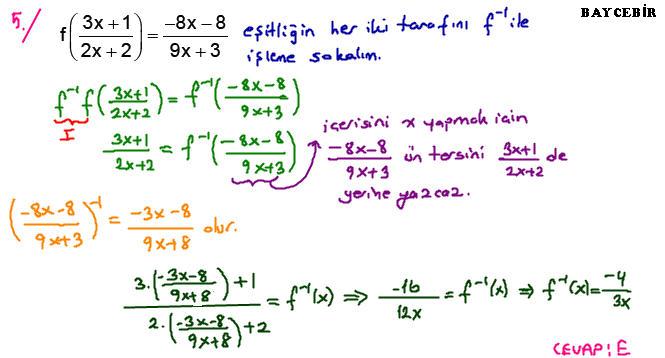 BAYCEBİR
5./ f((3x+1)/(2x+2)) = (-8x-8)/(9x+3) eşitliğin her iki tarafını f⁻¹ ile
işleme sokalım.
f⁻¹f((3x+1)/(2x+2)) = f⁻¹((-8x-8)/(9x+3))
I
(3x+1)/(2x+2) = f⁻¹((-8x-8)/(9x+3))
içerisini x yapmak için
(-8x-8)/(9x+3) ün tersini (3x+1)/(2x+2) de
yerine yazcaz.
((-8x-8)/(9x+3))⁻¹ = (-3x-8)/(9x+8) olur.
(3.((-3x-8)/(9x+8))+1)/(2.((-3x-8)/(9x+8))+2) = f⁻¹(x) ⇒ -16/12x = f⁻¹(x) ⇒ f⁻¹(x) = -4/3x
CEVAP: E